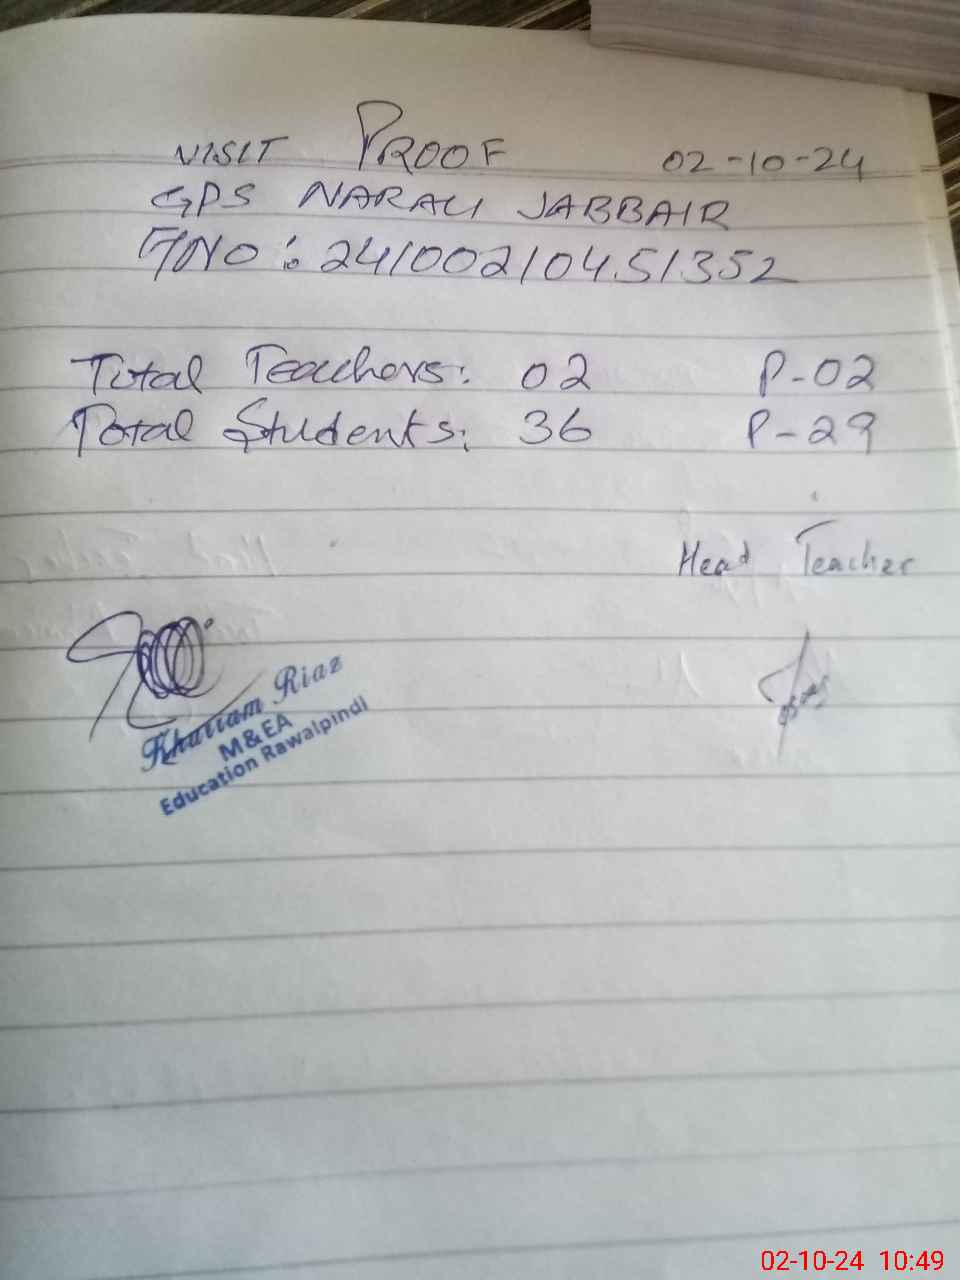 VISIT PROOF 02-10-24
GPS NARALI JABBAIR
F/NO : 24100210451352
Total Teachers: 02 P-02
Total Students: 36 P-29
Head Teacher
Khauam Riaz
M&EA
Education Rawalpindi
02-10-24 10:49